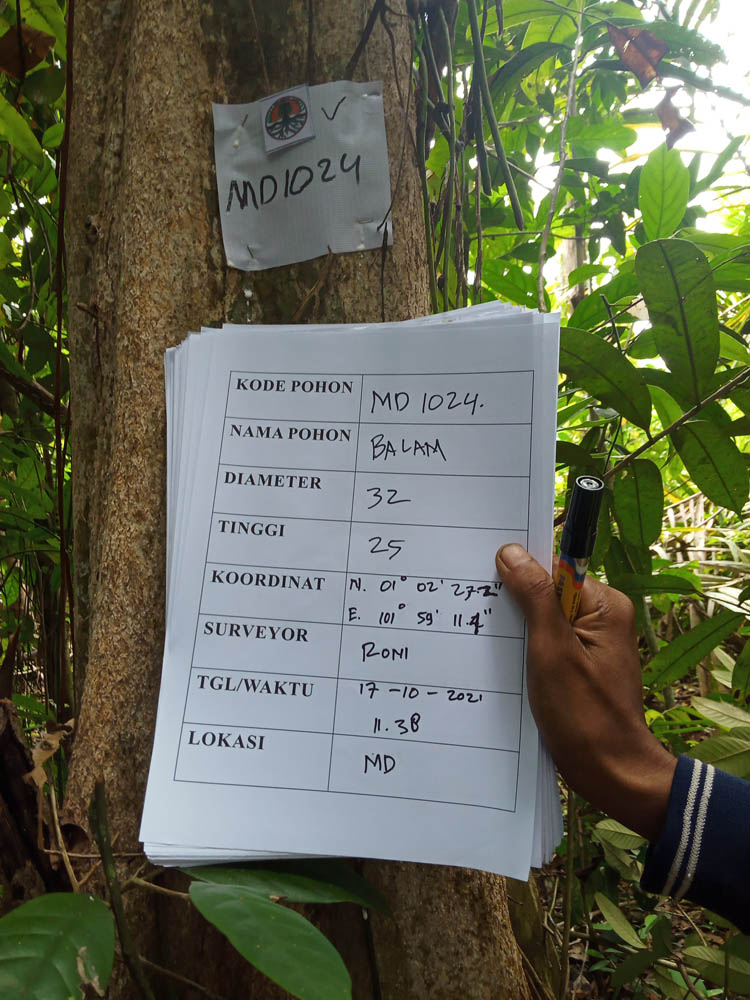 MD1024
KODE POHON MD 1024.
NAMA POHON BALAM
DIAMETER 32
TINGGI 25
KOORDINAT N. 01° 02' 27.2"
E. 101° 59' 11.4"
SURVEYOR RONI
TGL/WAKTU 17-10-2021
11.38
LOKASI MD